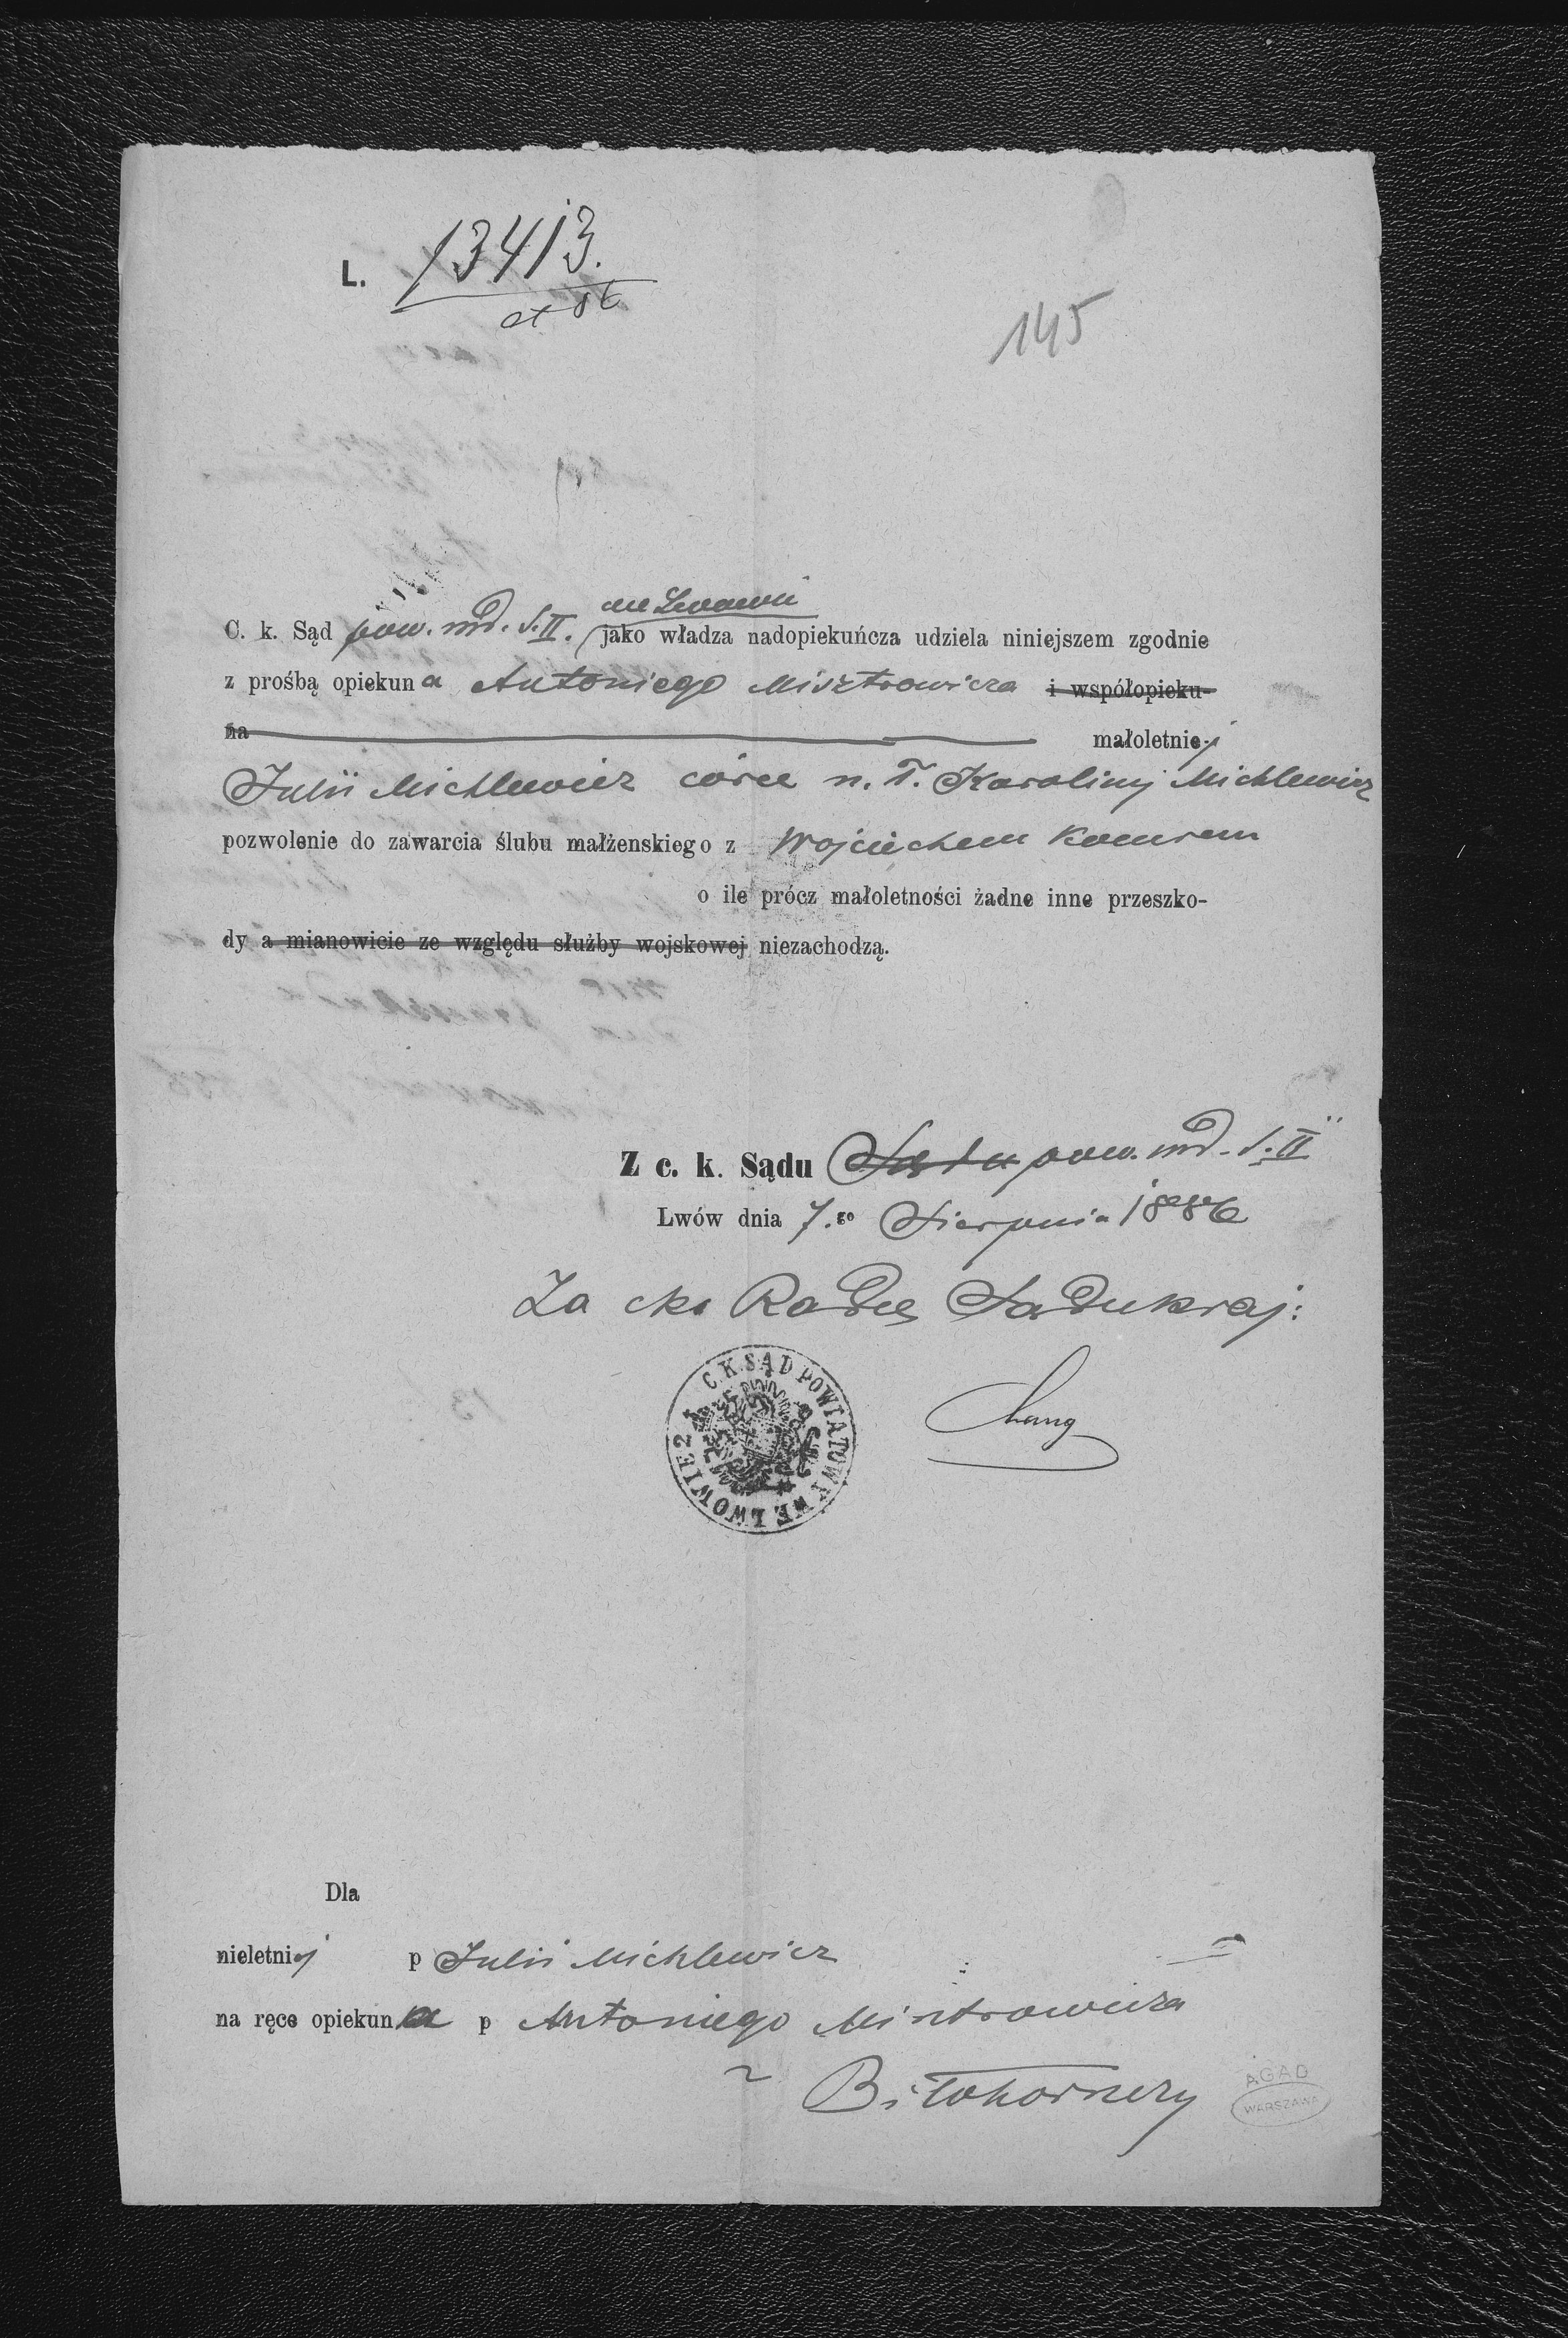 L. 13413.
et 86
145
we Lwowie
C. k. Sąd pow. md. S. II. jako władza nadopiekuńcza udziela niniejszem zgodnie
z prośbą opiekuna Antoniego Misztrowicza i współopieku-
na małoletniej
Julii Michlewicz córce n. T. Karoliny Michlewicz
pozwolenie do zawarcia ślubu małżenskiego z Wojciechem
o ile prócz małoletności żadne inne przeszko-
dy a mianowicie ze względu służby wojskowej niezachodzą.
Z c. k. Sądu Sądu pow. md. S. II
Lwów dnia 7.go Sierpnia 1886
Za ck. Radcę Sądu kraj:
C. K. SĄD POWIATOWY WE LWOWIE 2
Dla
nieletniej p Julii Michlewicz
na ręce opiekuna p Antoniego Misztrowicza
z Biłohorszczy
AGAD
WARSZAWA